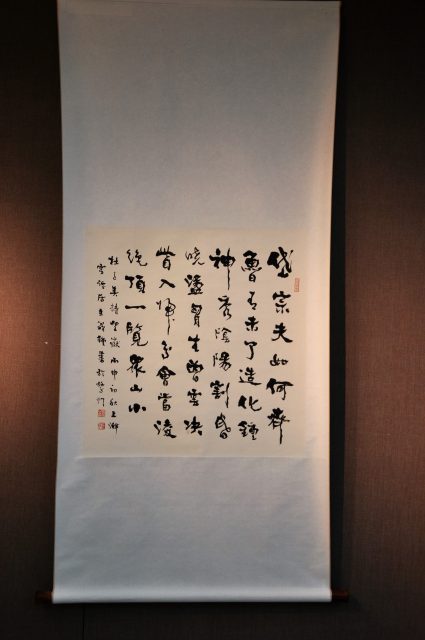 岱宗夫如何齊
魯青未了造化鍾
神秀陰陽割昏
曉盪胷生曾雲决
眥入歸鳥會當淩
絕頂一覽眾山小
杜子美詩望嶽丙申初秋上澣